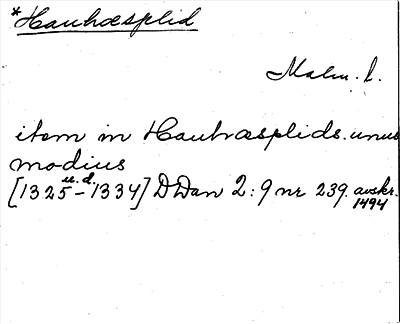 *Hauhæsplid
Malm. l.
item in Hauhræsplids. unus
modius
[1325 u.d. - 1334] DDan 2:9 nr 239. avskr. 1494